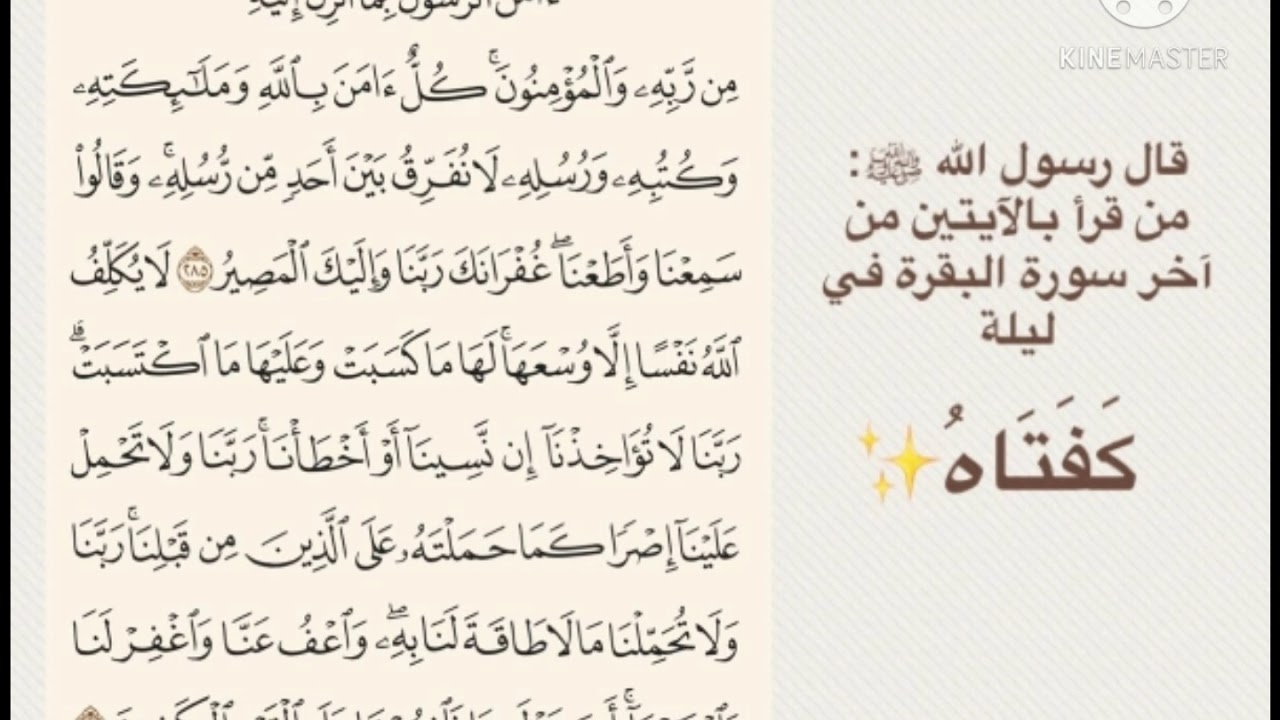 ءَامَنَ ٱلرَّسُولُ بِمَآ أُنزِلَ إِلَيْهِ
مِن رَّبِّهِۦ وَٱلْمُؤْمِنُونَ ۚ كُلٌّ ءَامَنَ بِٱللَّهِ وَمَلَٰٓئِكَتِهِۦ
وَكُتُبِهِۦ وَرُسُلِهِۦ لَا نُفَرِّقُ بَيْنَ أَحَدٍ مِّن رُّسُلِهِۦ ۚ وَقَالُوا۟
سَمِعْنَا وَأَطَعْنَا ۖ غُفْرَانَكَ رَبَّنَا وَإِلَيْكَ ٱلْمَصِيرُ ٢٨٥ لَا يُكَلِّفُ
ٱللَّهُ نَفْسًا إِلَّا وُسْعَهَا ۚ لَهَا مَا كَسَبَتْ وَعَلَيْهَا مَا ٱكْتَسَبَتْ ۗ
رَبَّنَا لَا تُؤَاخِذْنَآ إِن نَّسِينَآ أَوْ أَخْطَأْنَا ۚ رَبَّنَا وَلَا تَحْمِلْ
عَلَيْنَآ إِصْرًا كَمَا حَمَلْتَهُۥ عَلَى ٱلَّذِينَ مِن قَبْلِنَا ۚ رَبَّنَا
وَلَا تُحَمِّلْنَا مَا لَا طَاقَةَ لَنَا بِهِۦ ۖ وَٱعْفُ عَنَّا وَٱغْفِرْ لَنَا
KINEMASTER
قال رسول الله ﷺ :
من قرأ بالآيتين من
آخر سورة البقرة في
ليلة
كَفَتَاهُ✨